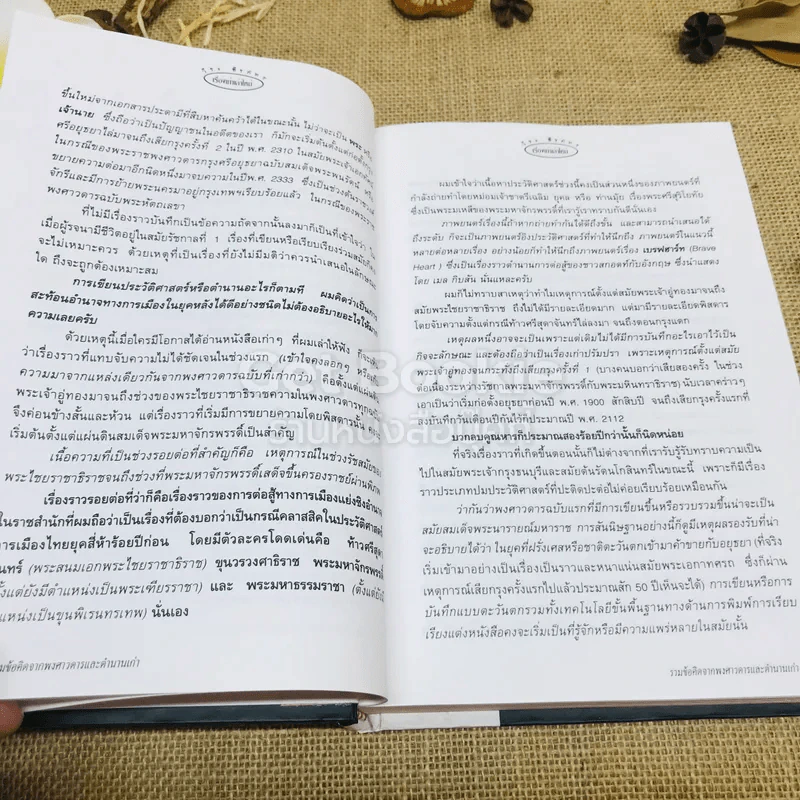 เรื่องเก่าเล่าใหม่
ขึ้นใหม่จากเอกสารประดามีที่สืบหาค้นคว้าได้ในขณะนั้น ไม่ว่าจะเป็น พระ
เจ้านาย ซึ่งถือว่าเป็นปัญญาชนในอดีตของเรา ก็มักจะเริ่มต้นตั้งแต่
ศรีอยุธยาไล่มาจนถึงเสียกรุงครั้งที่ 2 ในปี พ.ศ. 2310 ในสมัยพระเจ้าเอกทัศ
ในกรณีของพระราชพงศาวดารกรุงศรีอยุธยาฉบับสมเด็จพระพนรัตน์
ขยายความต่อมาอีกนิดหนึ่งมาจบความในปีพ.ศ. 2333 ซึ่งเป็นช่วงต้น
และมีการย้ายพระนครมาอยู่กรุงเทพฯเรียบร้อยแล้ว ในกรณีของพระราช
พงศาวดารฉบับพระหัตถเลขา
ที่ไม่มีเรื่องราวบันทึกเป็นข้อความถัดจากนั้นลงมาก็เป็นที่เข้าใจว่า
เมื่อผู้รจนามีชีวิตอยู่ในสมัยรัชกาลที่ 1 เรื่องที่เขียนหรือเรียบเรียงร่วมสมัยกับ
จะไม่เหมาะควร ด้วยเหตุที่เป็นเรื่องที่ยังไม่มีมติว่าควรนำเสนอในลักษณะ
ใด ถึงจะถูกต้องเหมาะสม
การเขียนประวัติศาสตร์หรือตำนานอะไรก็ตามที่ ผมคิดว่าเป็น
สะท้อนอำนาจทางการเมืองในยุคหลังได้ดีอย่างชนิดไม่ต้องอธิบายอะไรให้
ความเลยครับ
ด้วยเหตุนี้เมื่อใครมีโอกาสได้อ่านหนังสือเก่าๆ ที่ผมเล่าให้ฟัง ก็
ว่าเรื่องราวที่แทบจับความไม่ได้ชัดเจนในช่วงแรก (เข้าใจคงลอกๆ หรือ
ความมาจากแหล่งเดียวกันจากพงศาวดารฉบับที่เก่ากว่า) คือตั้งแต่
พระเจ้าอู่ทองมาจนถึงช่วงของพระไชยราชาธิราชความในพงศาวดารทุก
จึงค่อนข้างสั้นและห้วน แต่เรื่องราวที่เริ่มมีการขยายความโดยพิสดารนั้น
เริ่มต้นตั้งแต่แผ่นดินสมเด็จพระมหาจักรพรรดิ์เป็นสำคัญ
เนื้อความที่เป็นช่วงรอยต่อที่สำคัญก็คือ เหตุการณ์ในช่วงรัชสมัยของ
พระไชยราชาธิราชจนถึงช่วงที่พระมหาจักรพรรดิ์เสด็จขึ้นครองราชย์ผ่านพิภพ
เรื่องราวรอยต่อที่ว่าก็คือเรื่องราวของการต่อสู้ทางการเมืองแย่งชิงอำนาจ
ในราชสำนักที่ผมถือว่าเป็นเรื่องที่ต้องบอกว่าเป็นกรณีคลาสสิคในประวัติศาสตร์
การเมืองไทยยุคสี่ห้าร้อยปีก่อน โดยมีตัวละครโดดเด่นคือ ท้าวศรีสุดา
นทร์ (พระสนมเอกพระไชยราชาธิราช) ขุนวรวงศาธิราช พระมหาจักรพรรดิ์
ตั้งแต่ยังมีตำแหน่งเป็นพระเฑียรราชา) และ พระมหาธรรมราชา (ตั้งแต่ยังมี
แหน่งเป็นขุนพิเรนทรเทพ) นั่นเอง
มข้อคิดจากพงศาวดารและตำนานเก่า
เรื่องเก่าเล่าใหม่
ผมเข้าใจว่าเนื้อหาประวัติศาสตร์ช่วงนี้คงเป็นส่วนหนึ่งของภาพยนตร์ที่
กำลังถ่ายทำโดยหม่อมเจ้าชาตรีเฉลิม ยุคล หรือ ท่านมุ้ย เรื่องพระศรีสุริโยทัย
ซึ่งเป็นพระมเหสีของพระมหาจักรพรรดิ์ที่เรารู้เราทราบกันดีนั่นเอง
ภาพยนตร์เรื่องนี้ถ้าหากถ่ายทำกันได้ดีถึงขั้น และสามารถนำเสนอได้
ถึงระดับ ก็จะเป็นภาพยนตร์อิงประวัติศาสตร์ที่ทำให้นึกถึง ภาพยนตร์ในแนวนี้
หลายต่อหลายเรื่อง อย่างน้อยก็ทำให้นึกถึงภาพยนตร์เรื่อง เบรฟฮาร์ท (Brave
Heart ) ซึ่งเป็นเรื่องราวตำนานการต่อสู้ของชาวสกอตท์กับอังกฤษ ซึ่งนำแสดง
โดย เมล กิบสัน นั่นแหละครับ
ผมก็ไม่ทราบสาเหตุว่าทำไมเหตุการณ์ตั้งแต่สมัยพระเจ้าอู่ทองมาจนถึง
สมัยพระไชยราชาธิราช ถึงไม่ได้มีรายละเอียดมาก แต่มามีรายละเอียดพิสดาร
โดยจับความตั้งแต่กรณีท้าวศรีสุดาจันทร์ไล่ลงมา จนถึงตอนกรุงแตก
เหตุผลหนึ่งอาจจะเป็นเพราะแต่เดิมไม่ได้มีการบันทึกอะไรเอาไว้เป็น
กิจจะลักษณะ และต้องถือว่าเป็นเรื่องเก่าปรัมปรา เพราะเหตุการณ์ตั้งแต่สมัย
พระเจ้าอู่ทองจนกระทั่งถึงเสียกรุงครั้งที่ 1 (บางคนบอกว่าเสียสองครั้ง ในช่วง
ต่อเนื่องระหว่างรัชกาลพระมหาจักรพรรดิ์กับพระมหินทราธิราช) นับเวลาคร่าวๆ
เอาว่าเป็นเริ่มก่อตั้งอยุธยาก่อนปี พ.ศ. 1900 สักสิบปี จนถึงเสียกรุงครั้งแรกที่
ลงบันทึกวันเดือนปีกันไว้ประมาณปี พ.ศ. 2112
บวกลบคูณหารก็ประมาณสองร้อยปีกว่านั้นก็นิดหน่อย
ที่จริงเรื่องราวที่เกิดขึ้นตอนนั้นก็ไม่ต่างจากที่เรารับรู้รับทราบความเป็น
ไปในสมัยพระเจ้ากรุงธนบุรีและสมัยต้นรัตนโกสินทร์ในขณะนี้ เพราะก็มีเรื่อง
ราวประเภทปมประวัติศาสตร์ที่ปะติดปะต่อไม่ค่อยเรียบร้อยเหมือนกัน
ว่ากันว่าพงศาวดารฉบับแรกที่มีการเขียนขึ้นหรือรวบรวมขึ้นน่าจะเป็น
สมัยสมเด็จพระนารายณ์มหาราช การสันนิษฐานอย่างนี้ก็ดูมีเหตุผลรองรับที่น่า
จะอธิบายได้ว่า ในยุคที่ฝรั่งเศสหรือชาติตะวันตกเข้ามาค้าขายกับอยุธยา (ที่จริง
เริ่มเข้ามาอย่างเป็นเรื่องเป็นราวและหนาแน่นสมัยพระเอกาทศรถ ซึ่งก็ผ่าน
เหตุการณ์เสียกรุงครั้งแรกไปแล้วประมาณสัก 50 ปีเห็นจะได้) การเขียนหรือการ
บันทึกแบบตะวันตกรวมทั้งเทคโนโลยีขั้นพื้นฐานทางด้านการพิมพ์การเรียบ
เรียงแต่งหนังสือคงจะเริ่มเป็นที่รู้จักหรือมีความแพร่หลายในสมัยนั้น
รวมข้อคิดจากพงศาวดารและตำนานเก่า